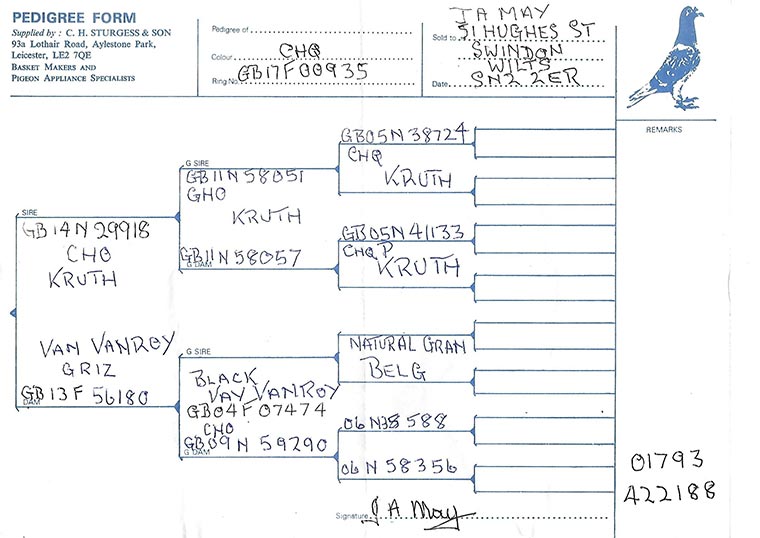 PEDIGREE FORM
Supplied by : C. H. STURGESS & SON
93a Lothair Road, Aylestone Park,
Leicester, LE2 7QE
BASKET MAKERS AND
PIGEON APPLIANCE SPECIALISTS
Pedigree of
Colour CHQ
Ring No. GB17F00935
J A MAY
Sold to 51 HUGHES ST
SWINDON
WILTS
Date SN2 2ER
REMARKS
GB05N38724
CHQ
KRUTH
G SIRE
GB11N58051
GHO
KRUTH
SIRE
GB14N29918
CHO
KRUTH
GB05N41133
CHQ P
KRUTH
GB11N58057
G DAM
VAN VANROY
GRIZ
GB13F 56180
DAM
NATURAL GRAN
BELG
G SIRE
BLACK
VAY VANROY
GB04F07474
CHO
GB09N 59290
G DAM
588
06 N 58356
01793
A22188
Signature J A May